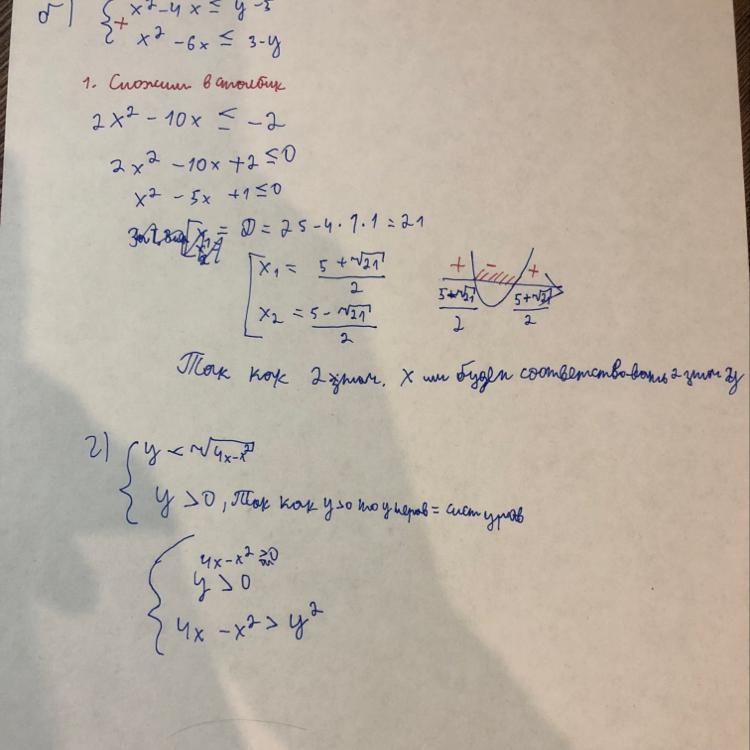 б) { x² - 4x ≤ y - 3
+ x² - 6x ≤ 3 - y
1. Сложим в столбик
2x² - 10x ≤ -2
2x² - 10x + 2 ≤ 0
x² - 5x + 1 ≤ 0
= D = 25 - 4·1·1 = 21
[ x₁ = (5 + √21)/2
x₂ = (5 - √21)/2
+ - +
(5 + √21)/2 (5 + √21)/2
Так как 2 знач. x им будет соответствовать 2 знач y
г) { y < √(4x - x²)
y > 0, Так как y > 0 то у нерав = сист урав
{ 4x - x² ≥ 0
y > 0
4x - x² > y²